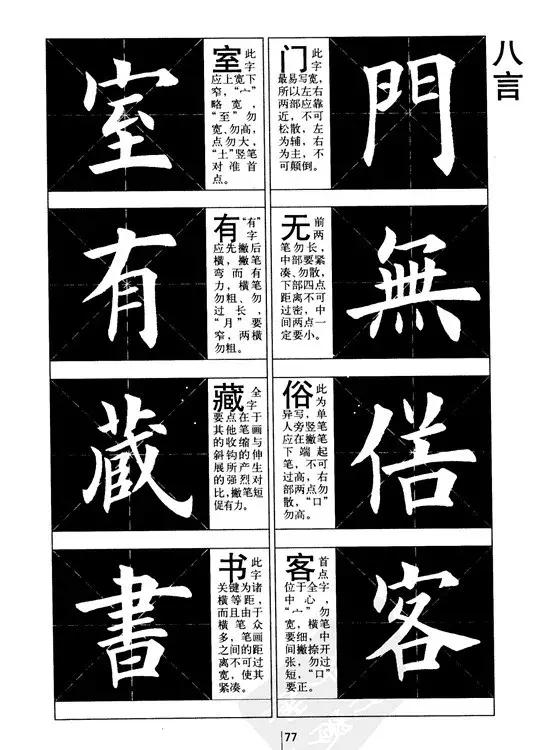 八言
門
门 此字
最易写宽，
所以左右
两部应靠
近，不可
松散，左
为辅，右
为主，不
可颠倒。
無
无 前两
笔勿长，
中部要紧
凑、勿散，
下部四点
距离不可
过密，中
间两点一
定要小。
俗
俗 此为
异写，单
人旁竖笔
应在撇笔
下端起
笔，不可
过高，右
部两点勿
散，“口”
勿高。
客
客 首点
位于全字
中心，
“宀”勿
宽，横笔
要细，中
间撇捺开
张，勿过
短，“口”
要正。
室
室 此字
应上宽下
窄，“宀”
略宽，
“至”勿
宽、勿高，
点勿大，
“土”竖笔
对准首
点。
有
有 “有”字
应先撇后
横，撇笔
弯而有
力，横笔
勿粗、勿
过长，
“月”要
窄，两横
勿粗。
藏
藏 全字
要点在于
其他笔画
的收缩与
斜钩的伸
展所产生
的强烈对
比，撇笔短
促有力。
書
书 此字
关键为诸
横等距，
而且由于
横笔众
多，笔画
之间的距
离不可过
宽，使其
紧凑。
77